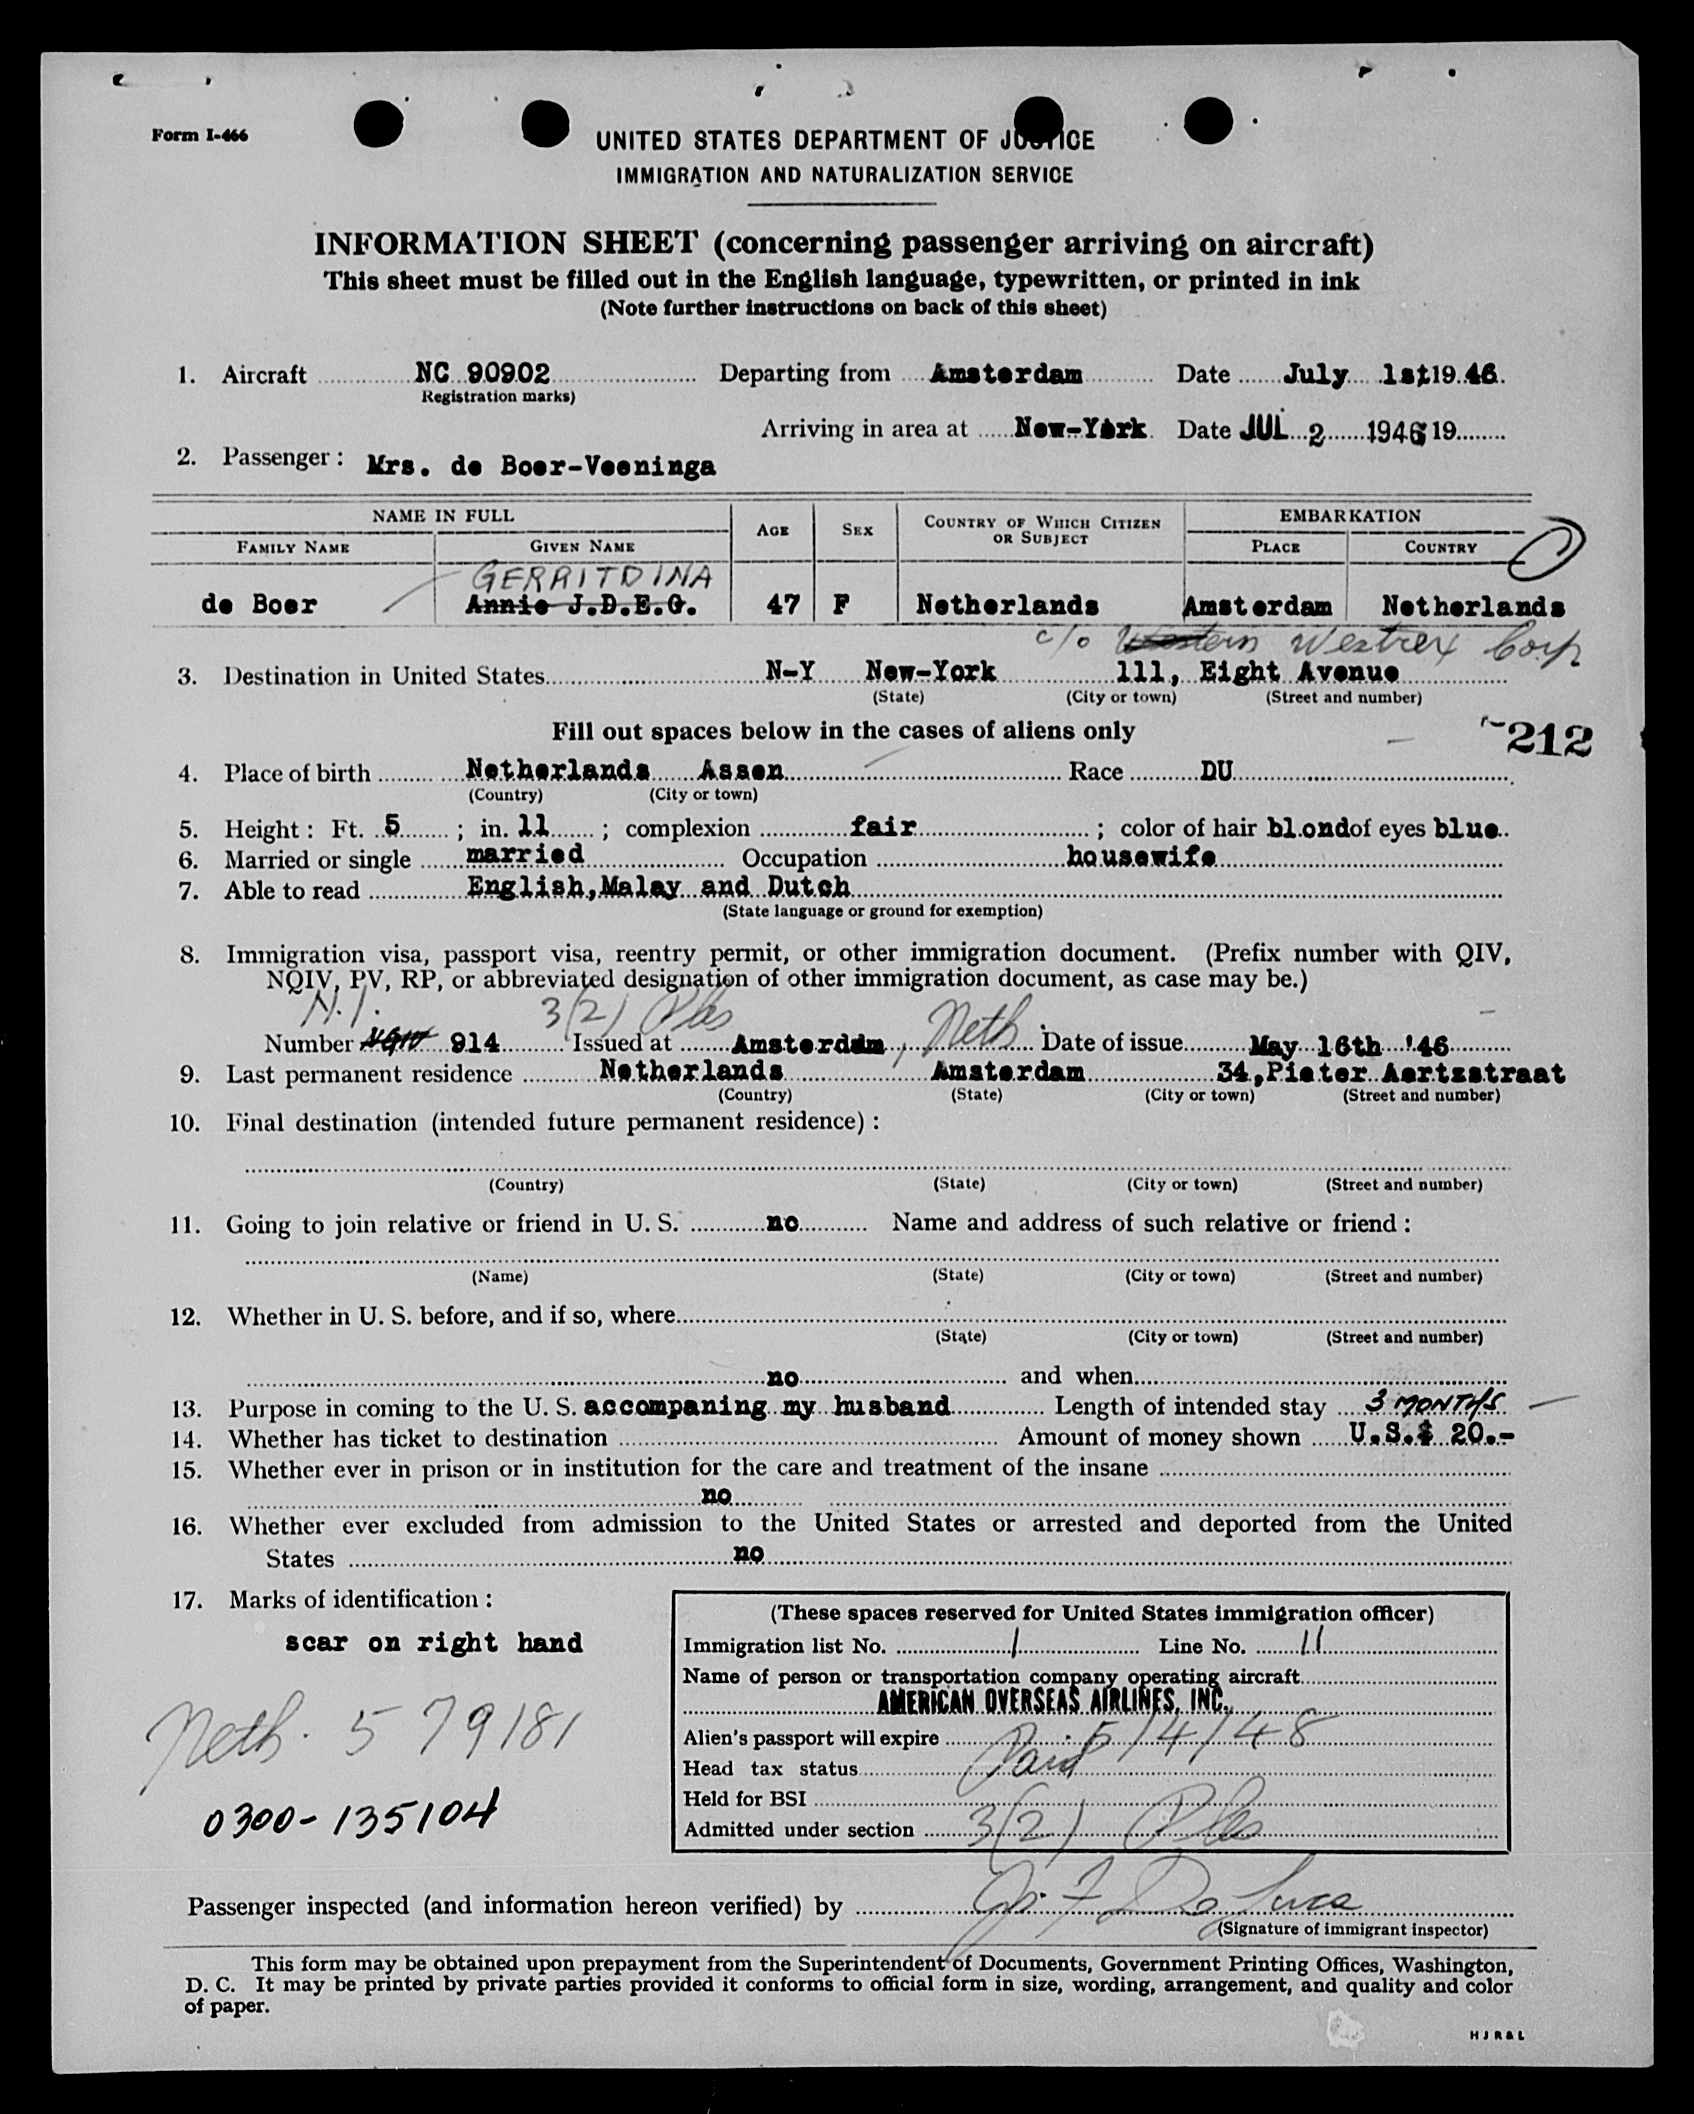 Form I-466
UNITED STATES DEPARTMENT OF JUSTICE
IMMIGRATION AND NATURALIZATION SERVICE
INFORMATION SHEET (concerning passenger arriving on aircraft)
This sheet must be filled out in the English language, typewritten, or printed in ink
(Note further instructions on back of this sheet)
1. Aircraft NC 90902 Departing from Amsterdam Date July 1st 19 46.
Registration marks)
Arriving in area at New-York Date JUL 2 1946 19
2. Passenger: Mrs. de Boer-Veeninga
NAME IN FULL AGE SEX COUNTRY OF WHICH CITIZEN OR SUBJECT EMBARKATION
FAMILY NAME GIVEN NAME PLACE COUNTRY
GERRITDINA
de Boer Annie J.D.E.G. 47 F Netherlands Amsterdam Netherlands
c/o Western Westrex Corp
3. Destination in United States N-Y New-York 111, Eight Avenue
(State) (City or town) (Street and number)
Fill out spaces below in the cases of aliens only
212
4. Place of birth Netherlands Assen Race DU
(Country) (City or town)
5. Height: Ft. 5 ; in. 11 ; complexion fair ; color of hair blond of eyes blue
6. Married or single married Occupation housewife
7. Able to read English, Malay and Dutch
(State language or ground for exemption)
8. Immigration visa, passport visa, reentry permit, or other immigration document. (Prefix number with QIV,
NQIV, PV, RP, or abbreviated designation of other immigration document, as case may be.)
N.I. 3(2) Pls
Number NQIV 914 Issued at Amsterdam, Neth. Date of issue May 16th '46
9. Last permanent residence Netherlands Amsterdam 34, Pieter Aertzstraat
(Country) (State) (City or town) (Street and number)
10. Final destination (intended future permanent residence):
(Country) (State) (City or town) (Street and number)
11. Going to join relative or friend in U. S. no Name and address of such relative or friend:
(Name) (State) (City or town) (Street and number)
12. Whether in U. S. before, and if so, where
(State) (City or town) (Street and number)
no and when
13. Purpose in coming to the U. S. accompaning my husband Length of intended stay 3 MONTHS
14. Whether has ticket to destination Amount of money shown U.S.$ 20.-
15. Whether ever in prison or in institution for the care and treatment of the insane
no
16. Whether ever excluded from admission to the United States or arrested and deported from the United
States no
17. Marks of identification:
scar on right hand
Neth. 579181
0300-135104
(These spaces reserved for United States immigration officer)
Immigration list No. 1 Line No. 11
Name of person or transportation company operating aircraft
AMERICAN OVERSEAS AIRLINES, INC.
Alien's passport will expire 5/4/48
Head tax status Paid
Held for BSI
Admitted under section 3(2) Pls
Passenger inspected (and information hereon verified) by
(Signature of immigrant inspector)
This form may be obtained upon prepayment from the Superintendent of Documents, Government Printing Offices, Washington,
D. C. It may be printed by private parties provided it conforms to official form in size, wording, arrangement, and quality and color
of paper.
HJR&L